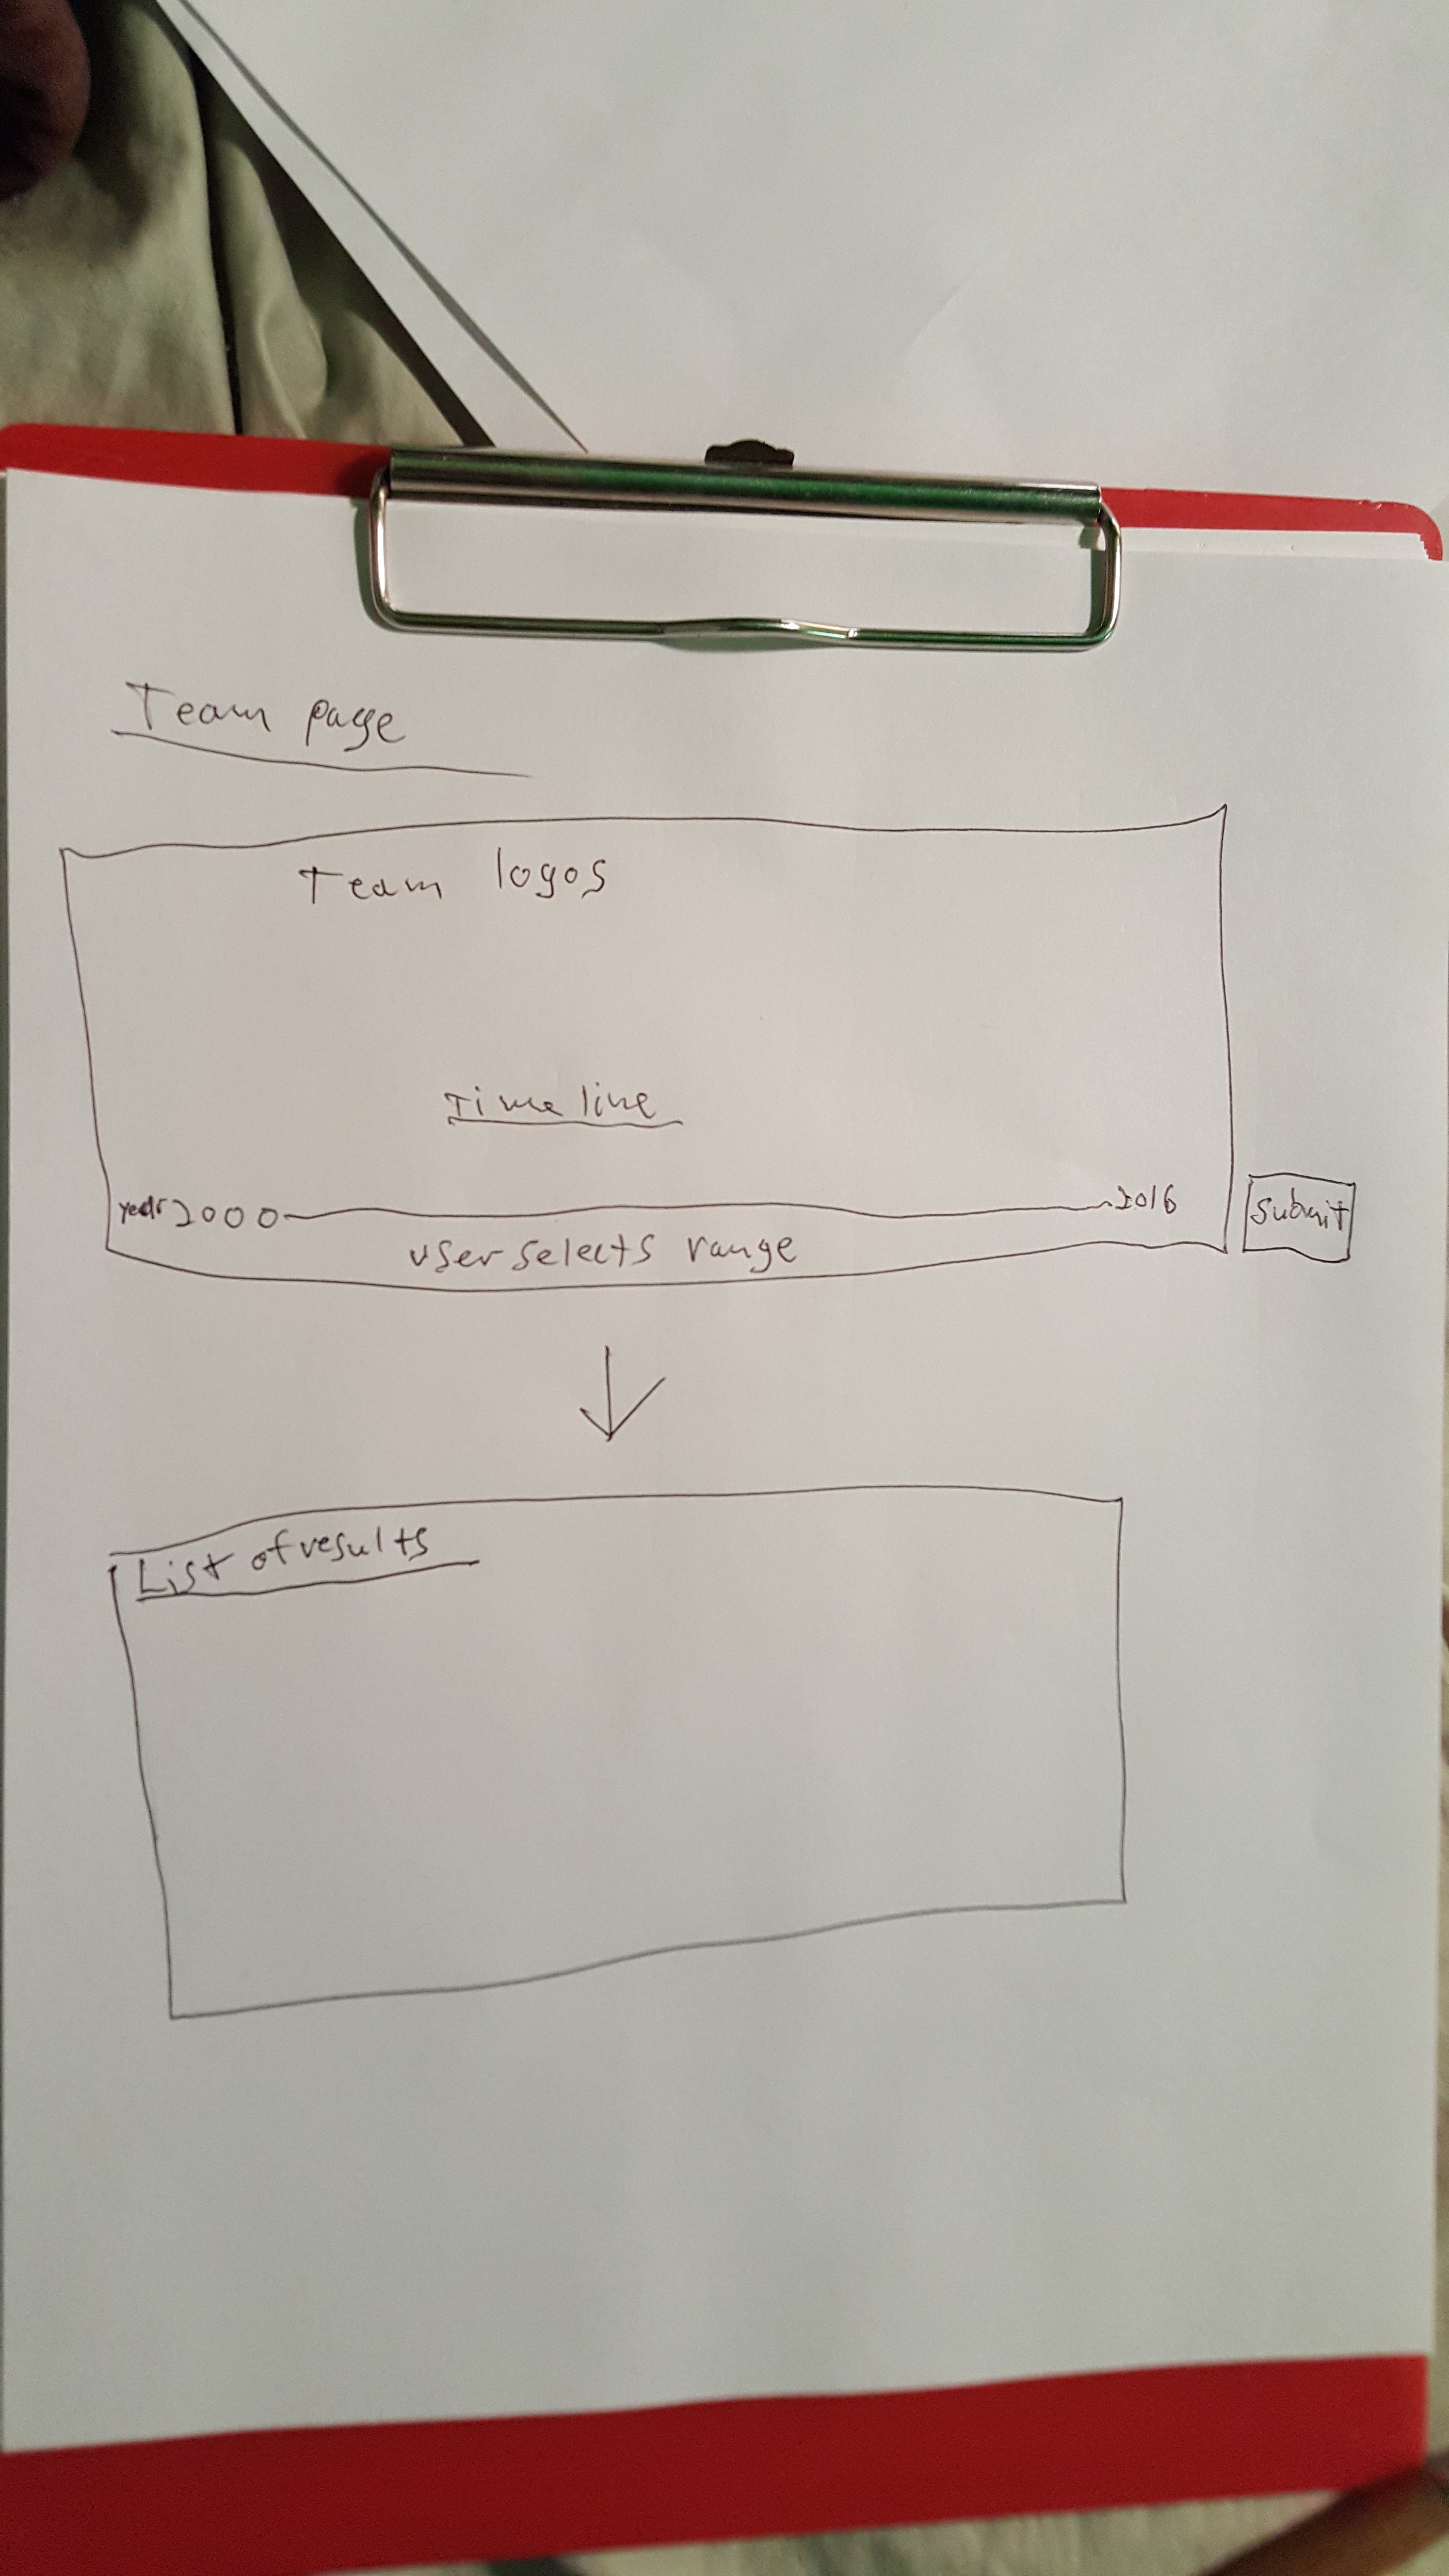 Team page
Team logos
Timeline
year 2000 2016
Submit
user selects range
List of results